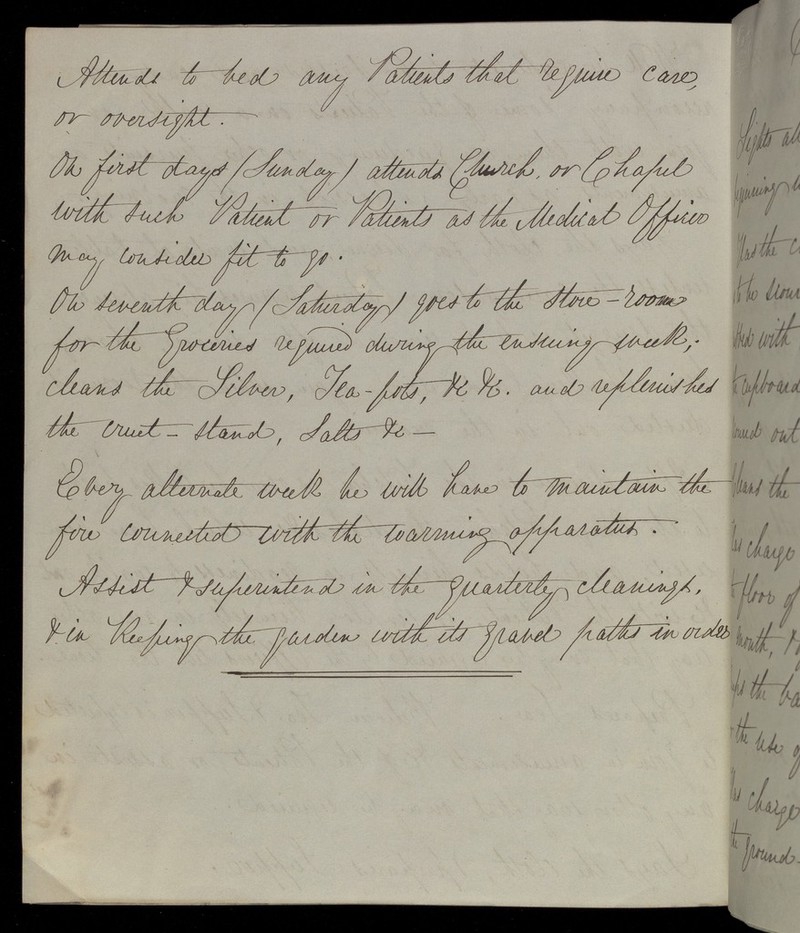 Attends to bed any Patients that require care,
or oversight.
On first days (Sunday) attends Church, or Chapel
with such Patient or Patients as the Medical Officer
may consider fit to go.
On seventh day (Saturday) goes to the Store-room
for the Groceries required during the ensuing week,
cleans the Silver, Tea-pots, &c &c. and replenishes
the cruet-stand, Salts &c —
Every alternate week he will have to maintain the
fire connected with the warming apparatus.
Assist & superintend in the quarterly cleanings,
& in keeping the garden with its gravel paths in order
Lights
Has the
to be
with
cupboard
out
Cleans the
charge
floor of
month, &
the
the use
charge
the ground